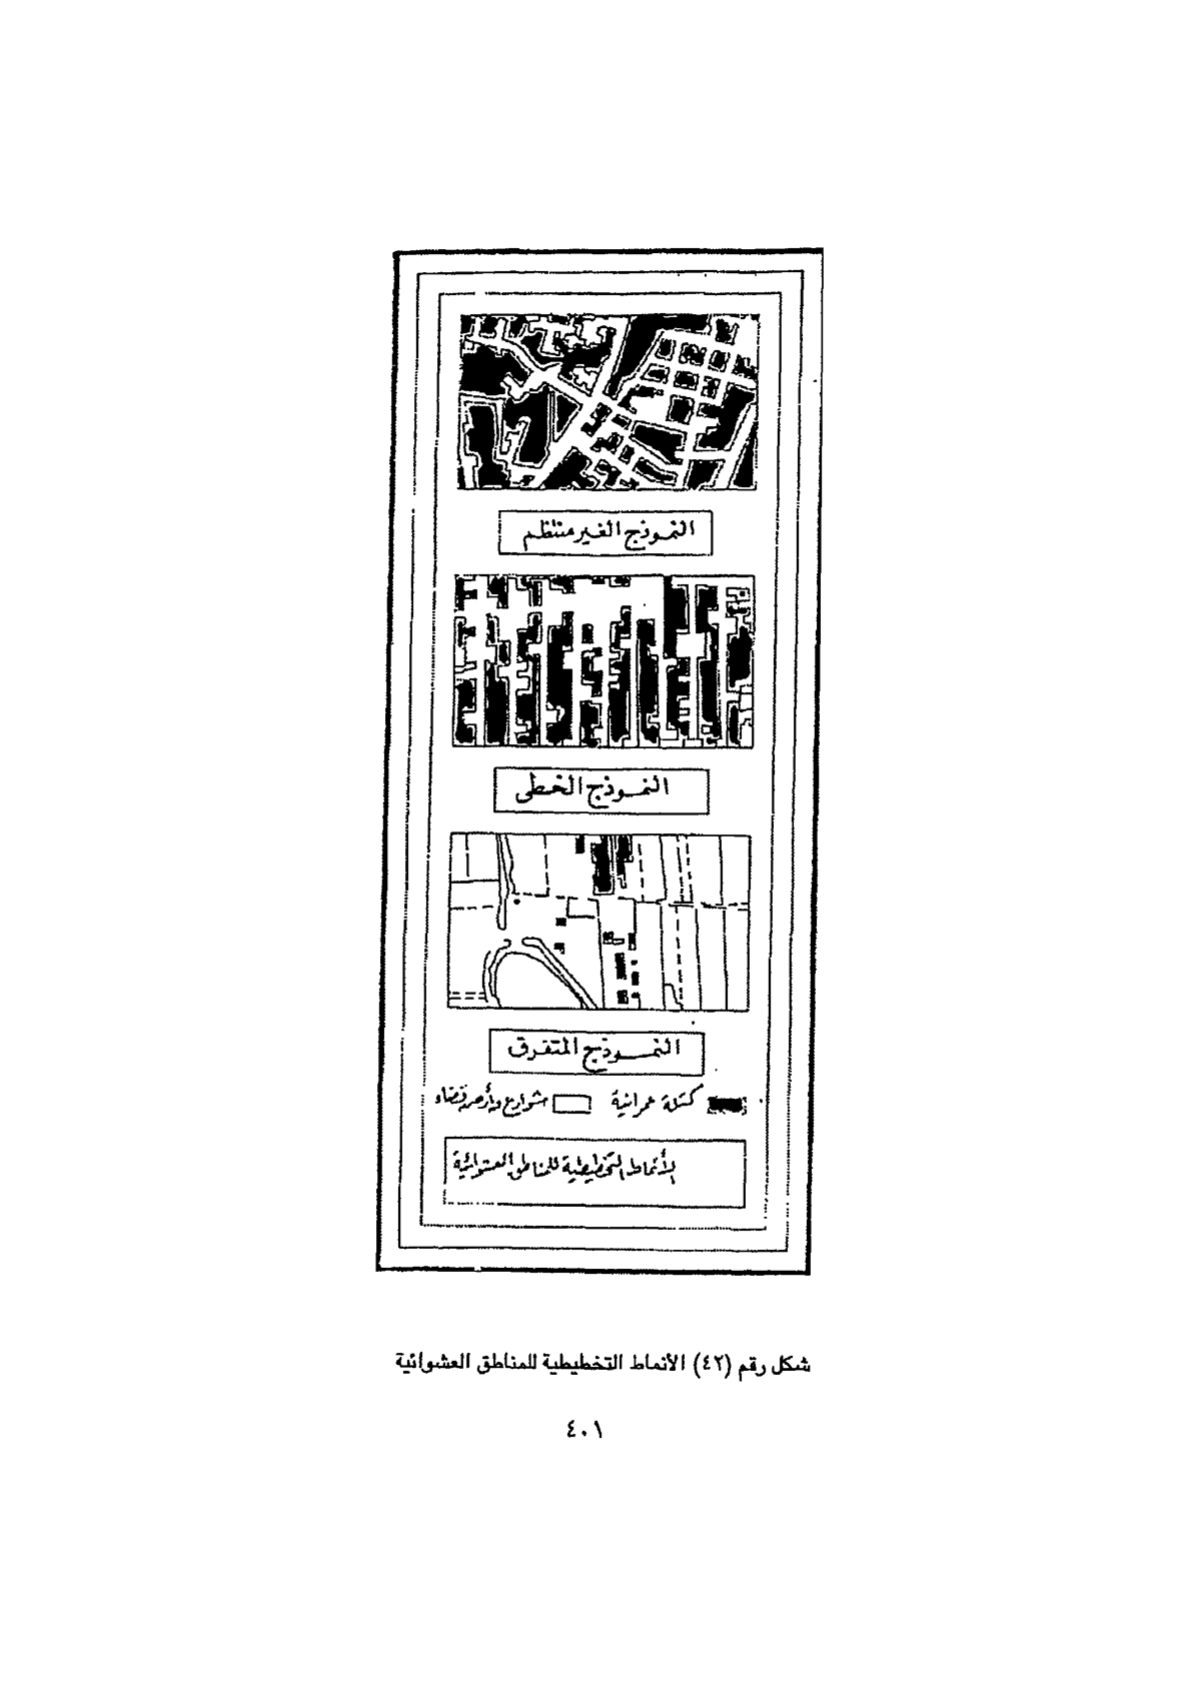 النموذج الغير منتظم
النموذج الخطى
النموذج المتفرق
كتلة عمرانية
شوارع وأرض فضاء
الأنماط التخطيطية للمناطق العشوائية
شكل رقم (٤٢) الأنماط التخطيطية للمناطق العشوائية
٤٠١